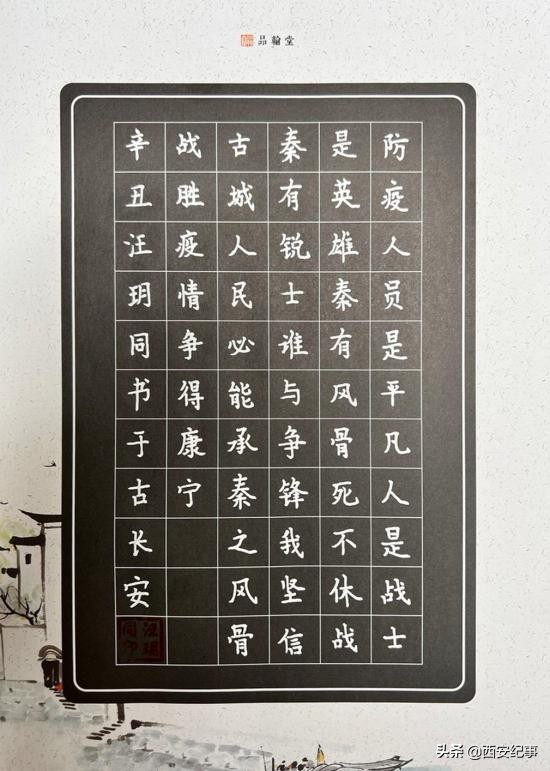 品翰堂
防疫人员是平凡人是战士
是英雄秦有风骨死不休战
秦有锐士谁与争锋我坚信
古城人民必能承秦之风骨
战胜疫情争得康宁
辛丑汪玥同书于古长安
汪玥同印
头条 @西安纪事